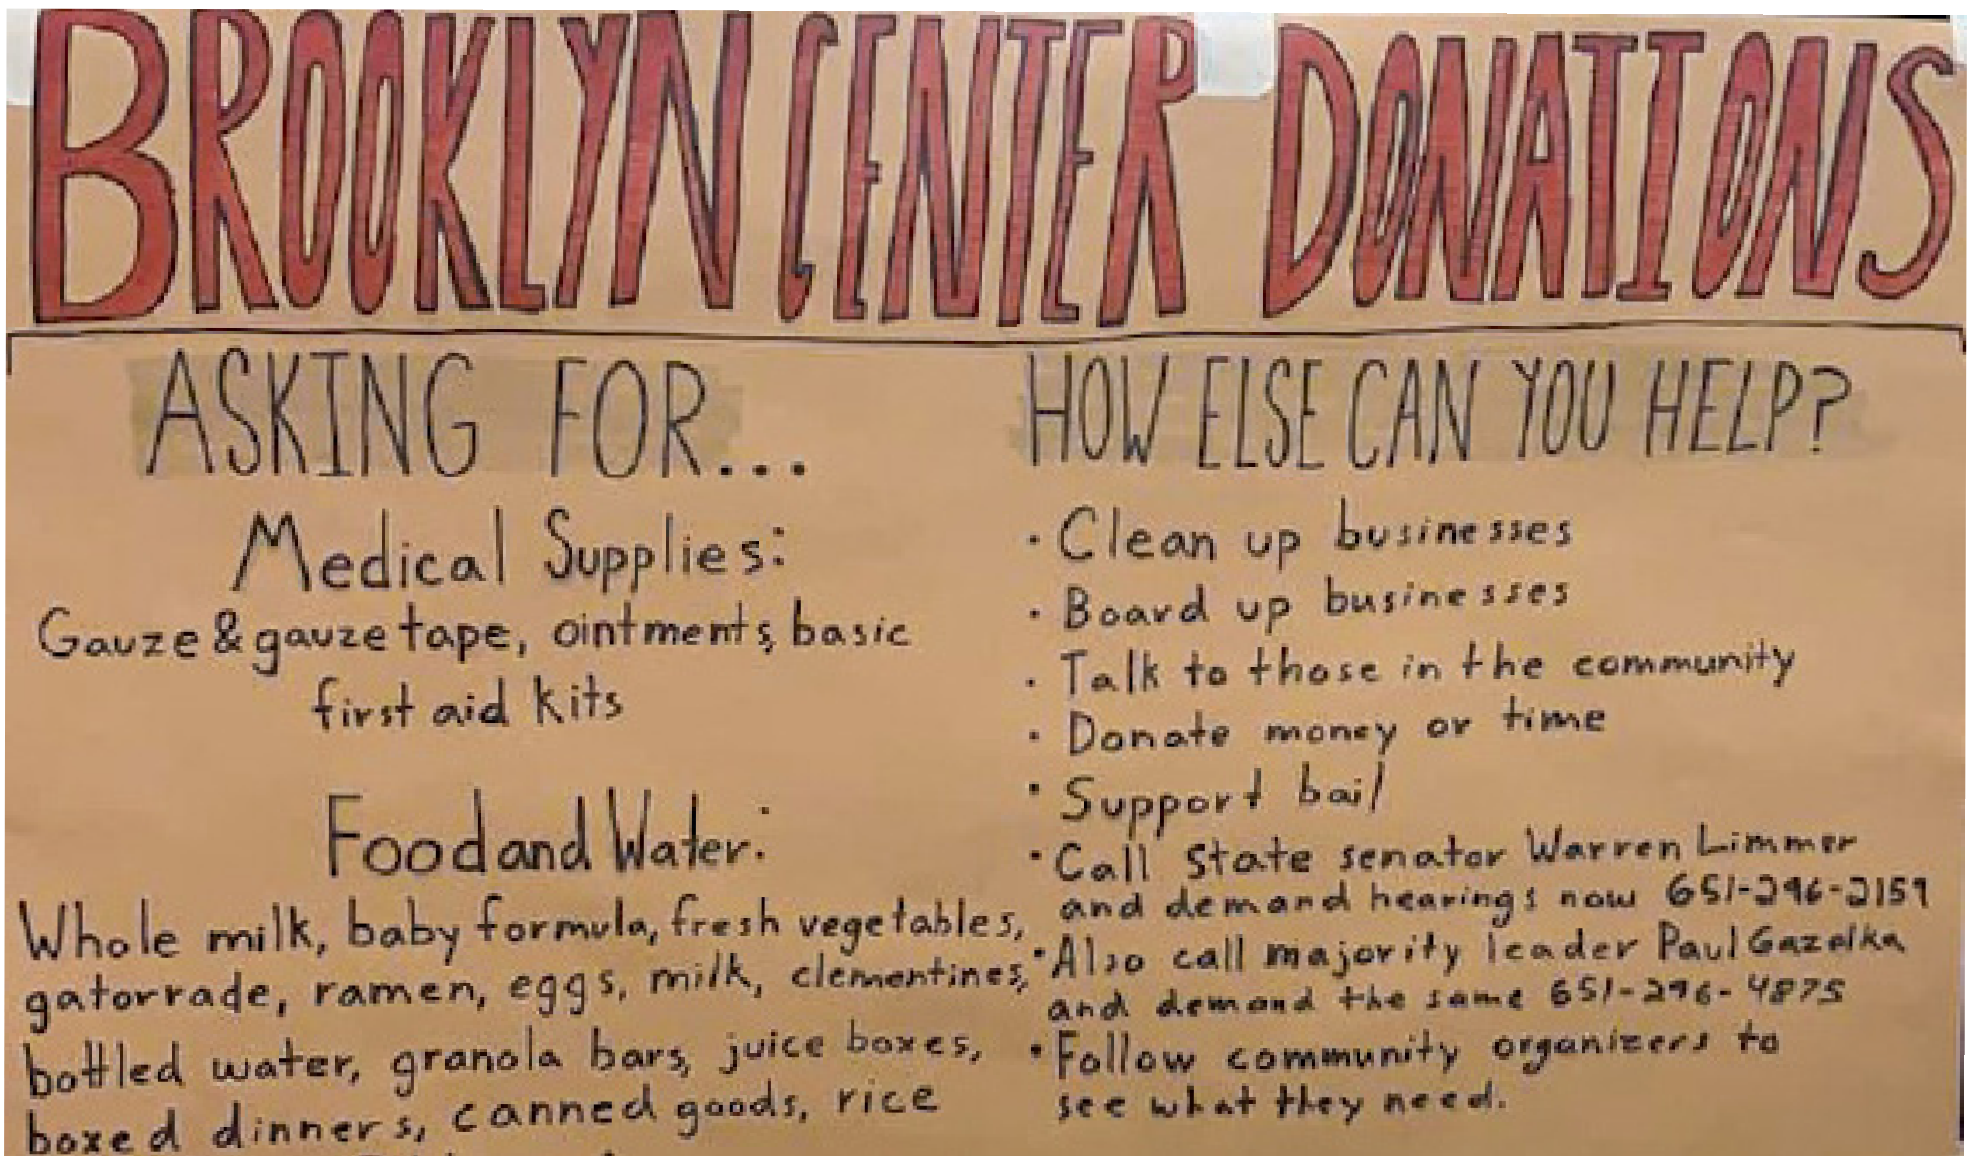 BROOKLYN CENTER DONATIONS
ASKING FOR...
Medical Supplies:
Gauze & gauze tape, ointments, basic
first aid kits
Food and Water:
Whole milk, baby formula, fresh vegetables,
gatorrade, ramen, eggs, milk, clementines,
bottled water, granola bars, juice boxes,
boxed dinners, canned goods, rice
HOW ELSE CAN YOU HELP?
· Clean up businesses
· Board up businesses
· Talk to those in the community
· Donate money or time
· Support bail
· Call State senator Warren Limmer
and demand hearings now 651-296-2159
· Also call majority leader Paul Gazelka
and demand the same 651-296-4875
· Follow community organizers to
see what they need.